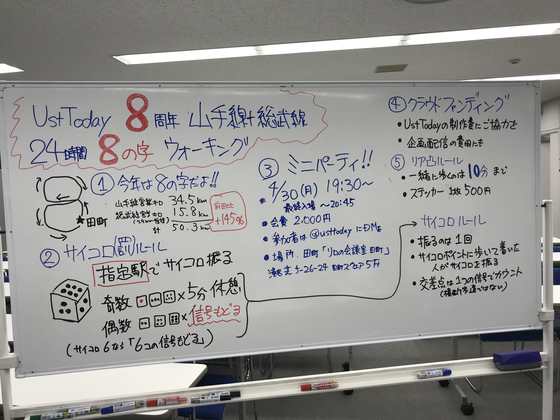 UstToday 8周年 山手線+総武線
24時間 8の字 ウォーキング
① 今年は8の字だよ!!
山手線営業キロ 34.5km
総武線営業キロ 15.8km
計 50.3km
前回比
+145%
田町
② サイコロ(罰)ルール
指定駅でサイコロ振る
奇数 ×5分休憩
偶数 ×信号もどる
(サイコロ6なら「6つの信号もどる」)
③ ミニパーティ!!
4/30(月) 19:30〜
最終入場 〜20:45
・会費 2,000円
・参加者は@usttodayにDMを
・場所 田町「リロの会議室 田町」
港区芝5-26-24 田町スクエア5F
④ クラウドファンディング
・UstTodayの制作費にご協力を
・企画配信の費用にも
⑤ リアルルール
・一緒に歩くのは10分まで
・ステッカー 1枚 500円
サイコロルール
・振るのは1回
・サイコロポイントに歩いて着いた
人がサイコロを振る
・交差点は1つの信号でカウント
(横断歩道ではない)